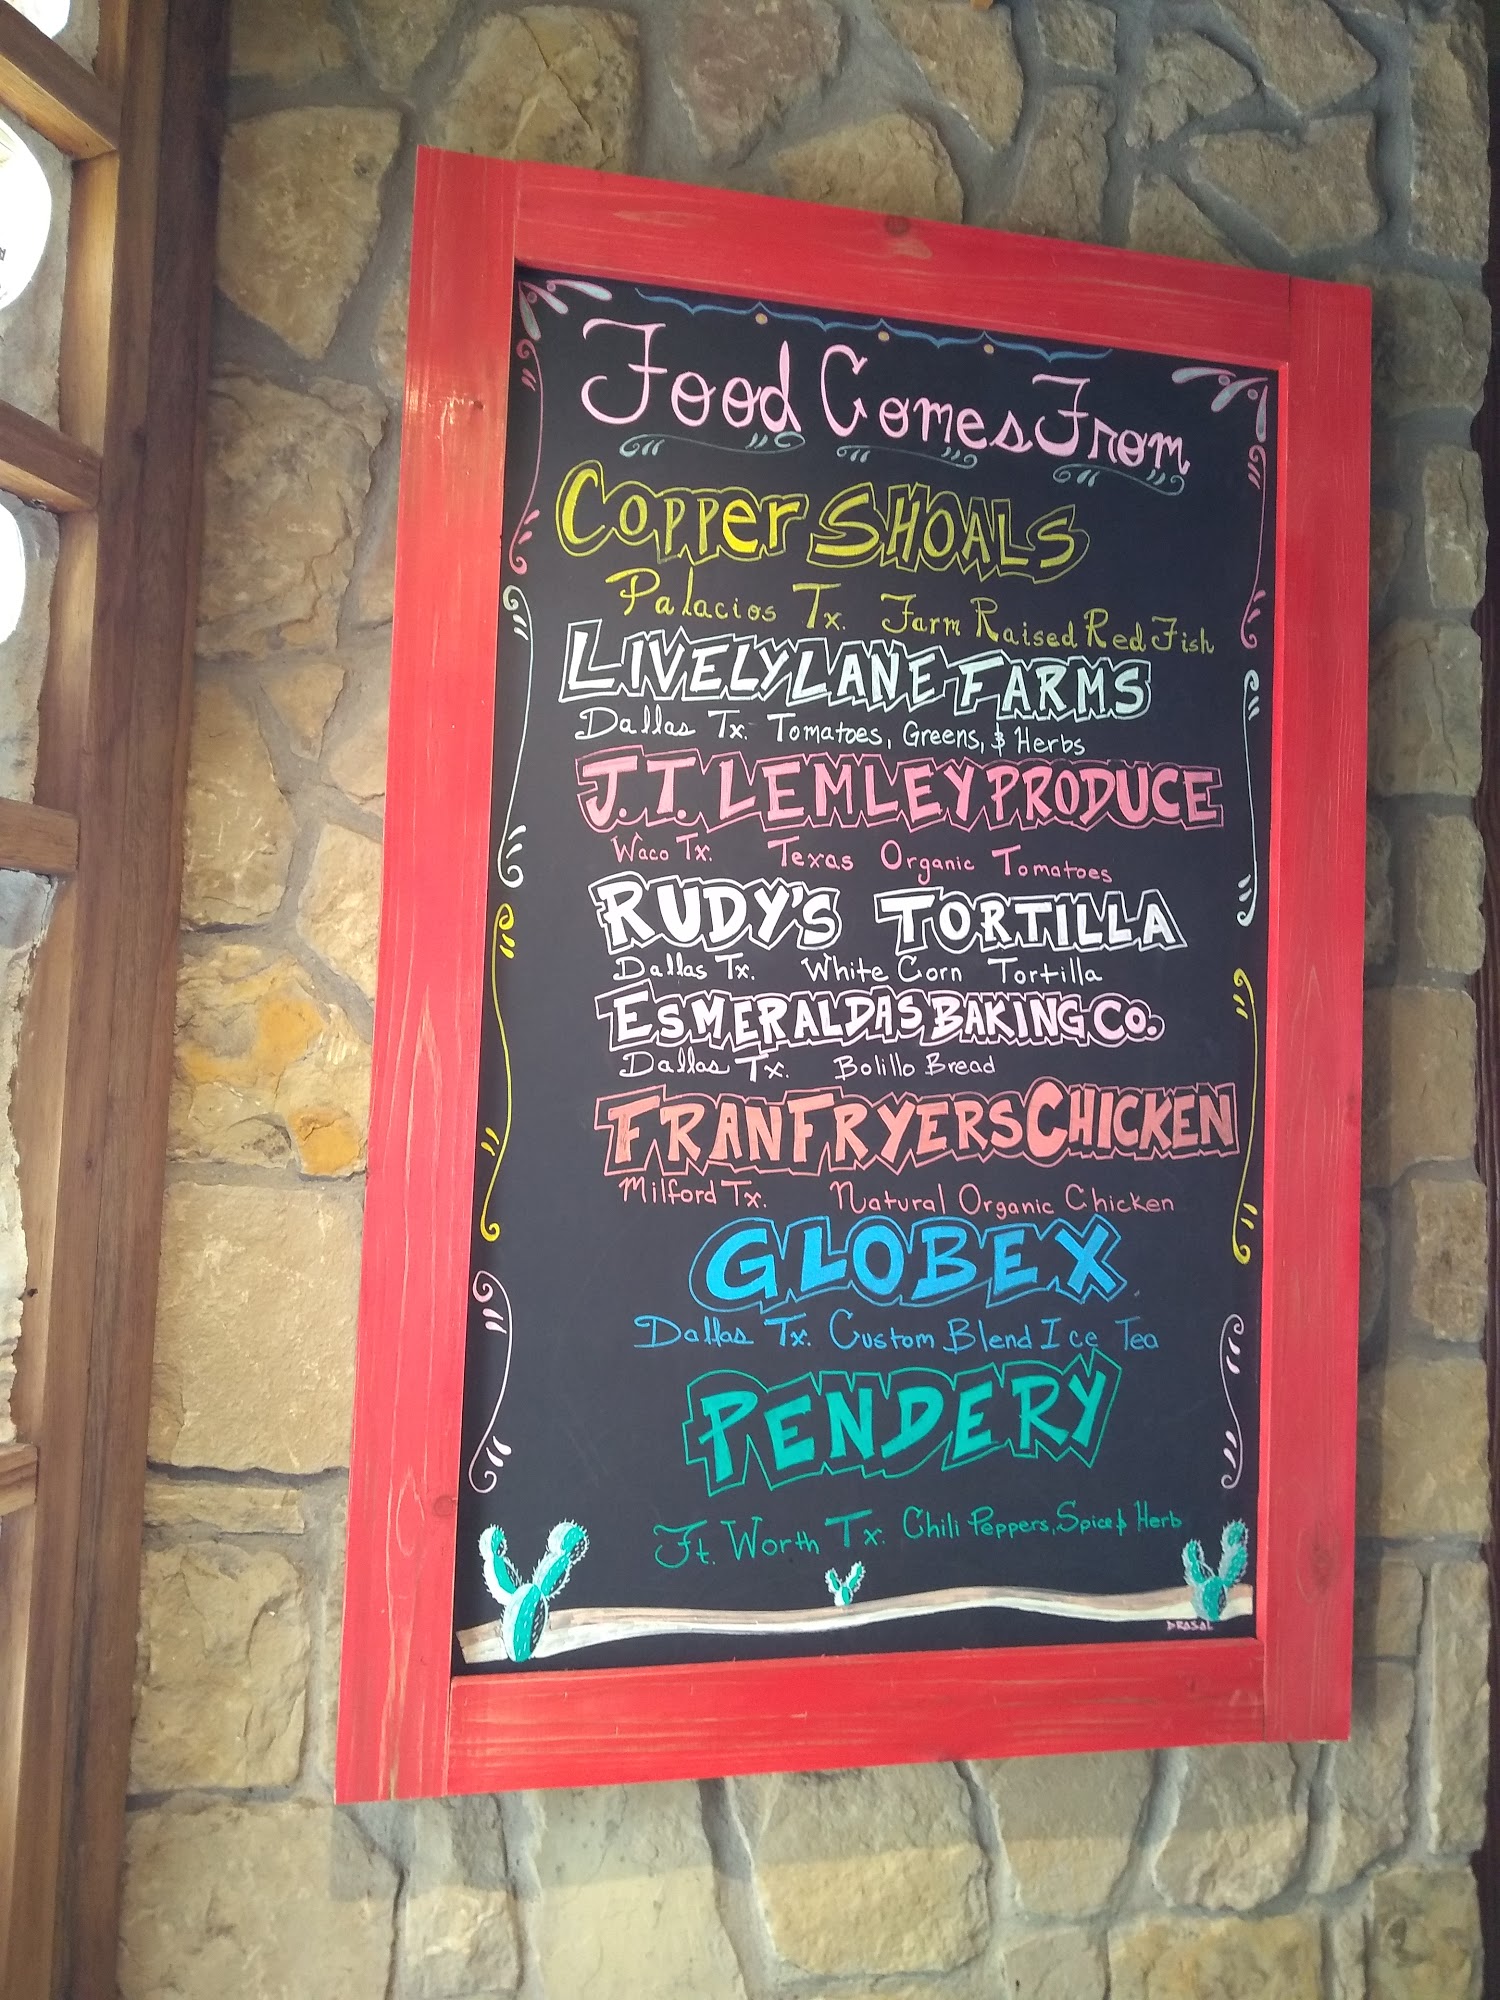 Food Comes From
Copper SHOALS
Palacios Tx. Farm Raised Red Fish
LIVELY LANE FARMS
Dallas Tx. Tomatoes, Greens, & Herbs
J.T. LEMLEY PRODUCE
Waco Tx. Texas Organic Tomatoes
RUDY'S TORTILLA
Dallas Tx. White Corn Tortilla
ESMERALDAS BAKING CO.
Dallas Tx. Bolillo Bread
FRAN FRYERS CHICKEN
Milford Tx. Natural Organic Chicken
GLOBEX
Dallas Tx. Custom Blend Ice Tea
PENDERY
Ft. Worth Tx. Chili Peppers, Spice & Herb
DRASAL